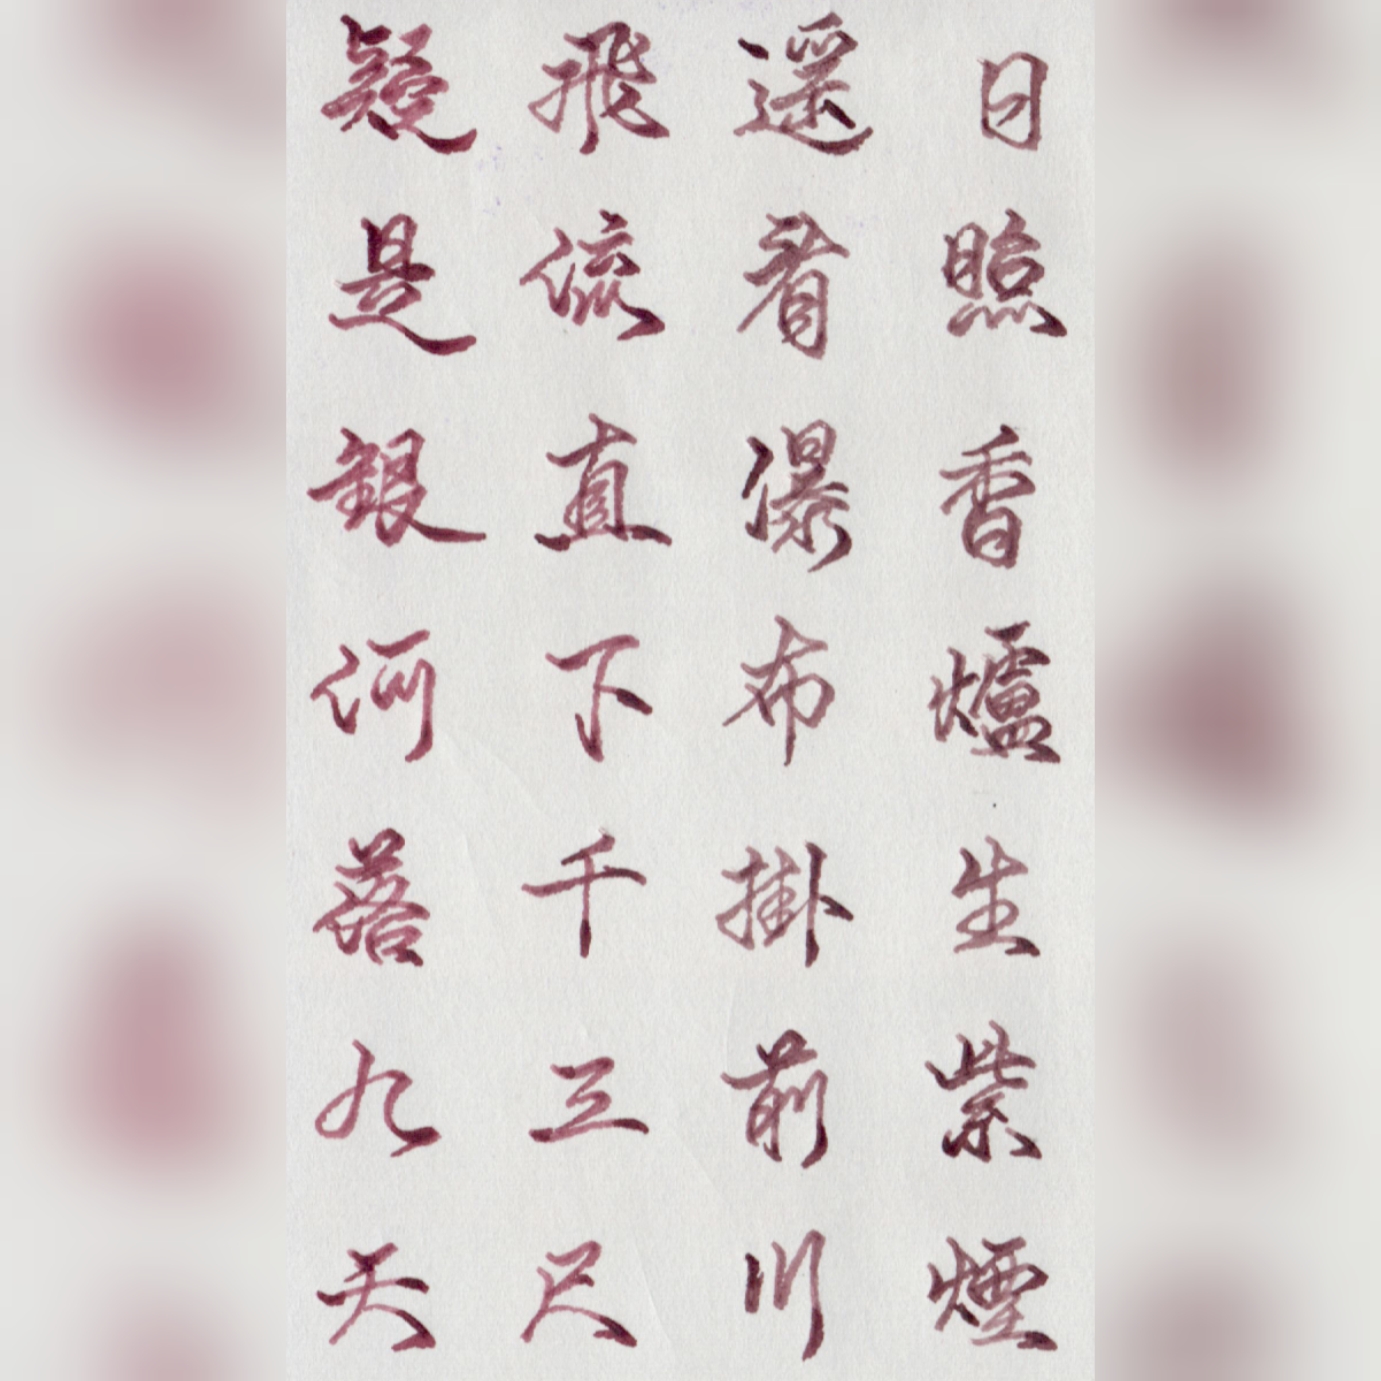 日照香爐生紫煙
遥看瀑布掛前川
飛流直下千三尺
疑是銀河落九天